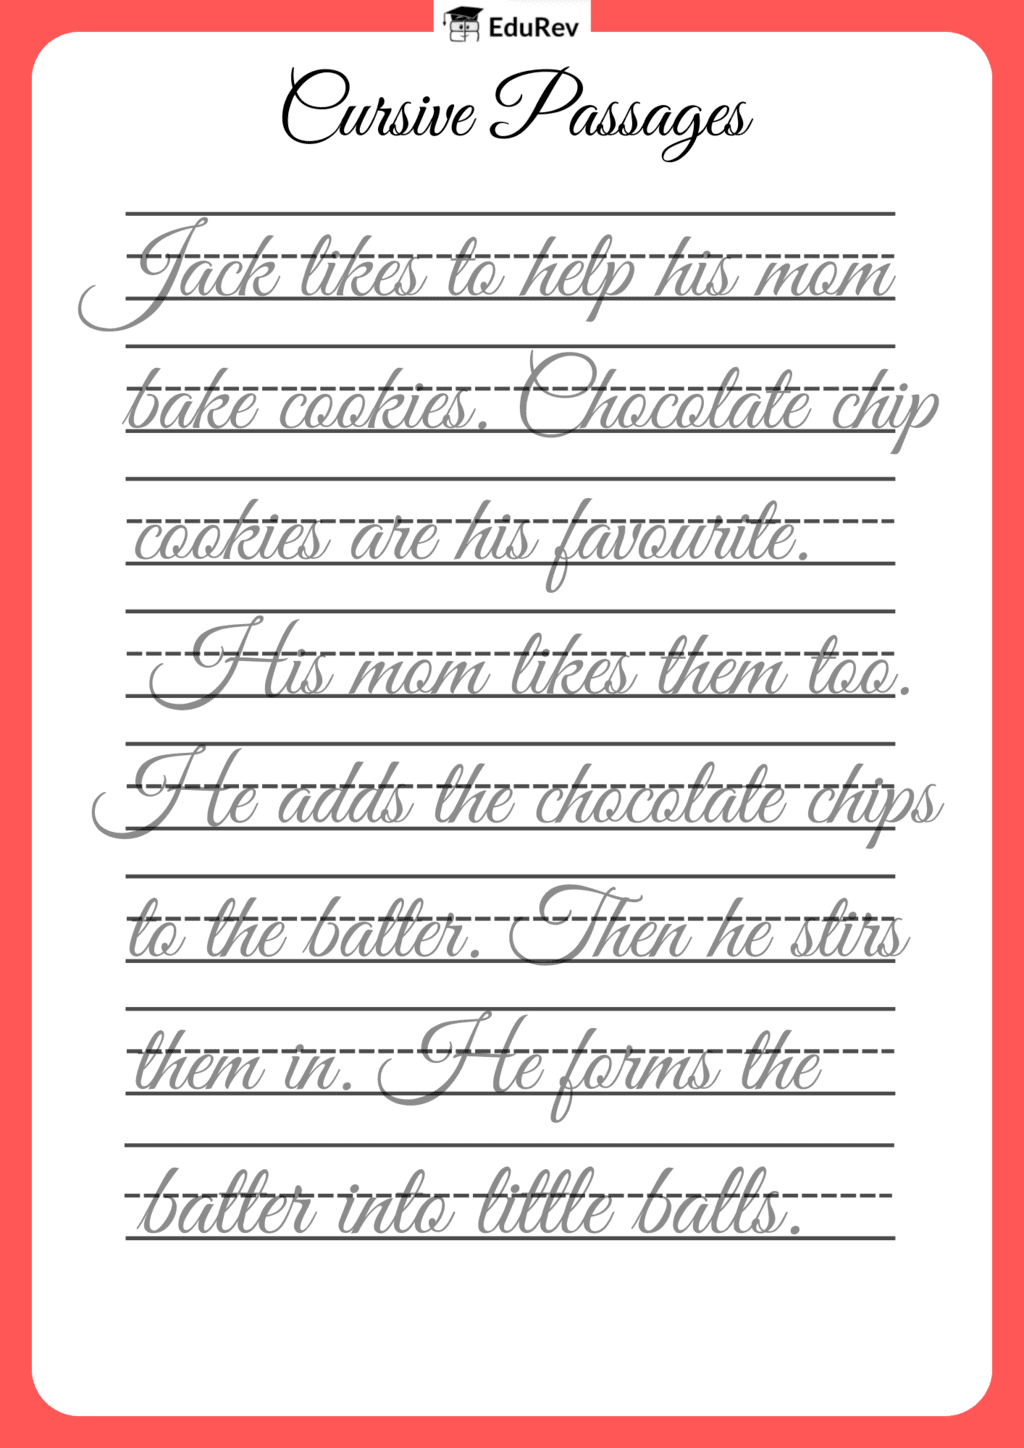 EduRev
Cursive Passages
Jack likes to help his mom
bake cookies. Chocolate chip
cookies are his favourite.
His mom likes them too.
He adds the chocolate chips
to the batter. Then he stirs
them in. He forms the
batter into little balls.